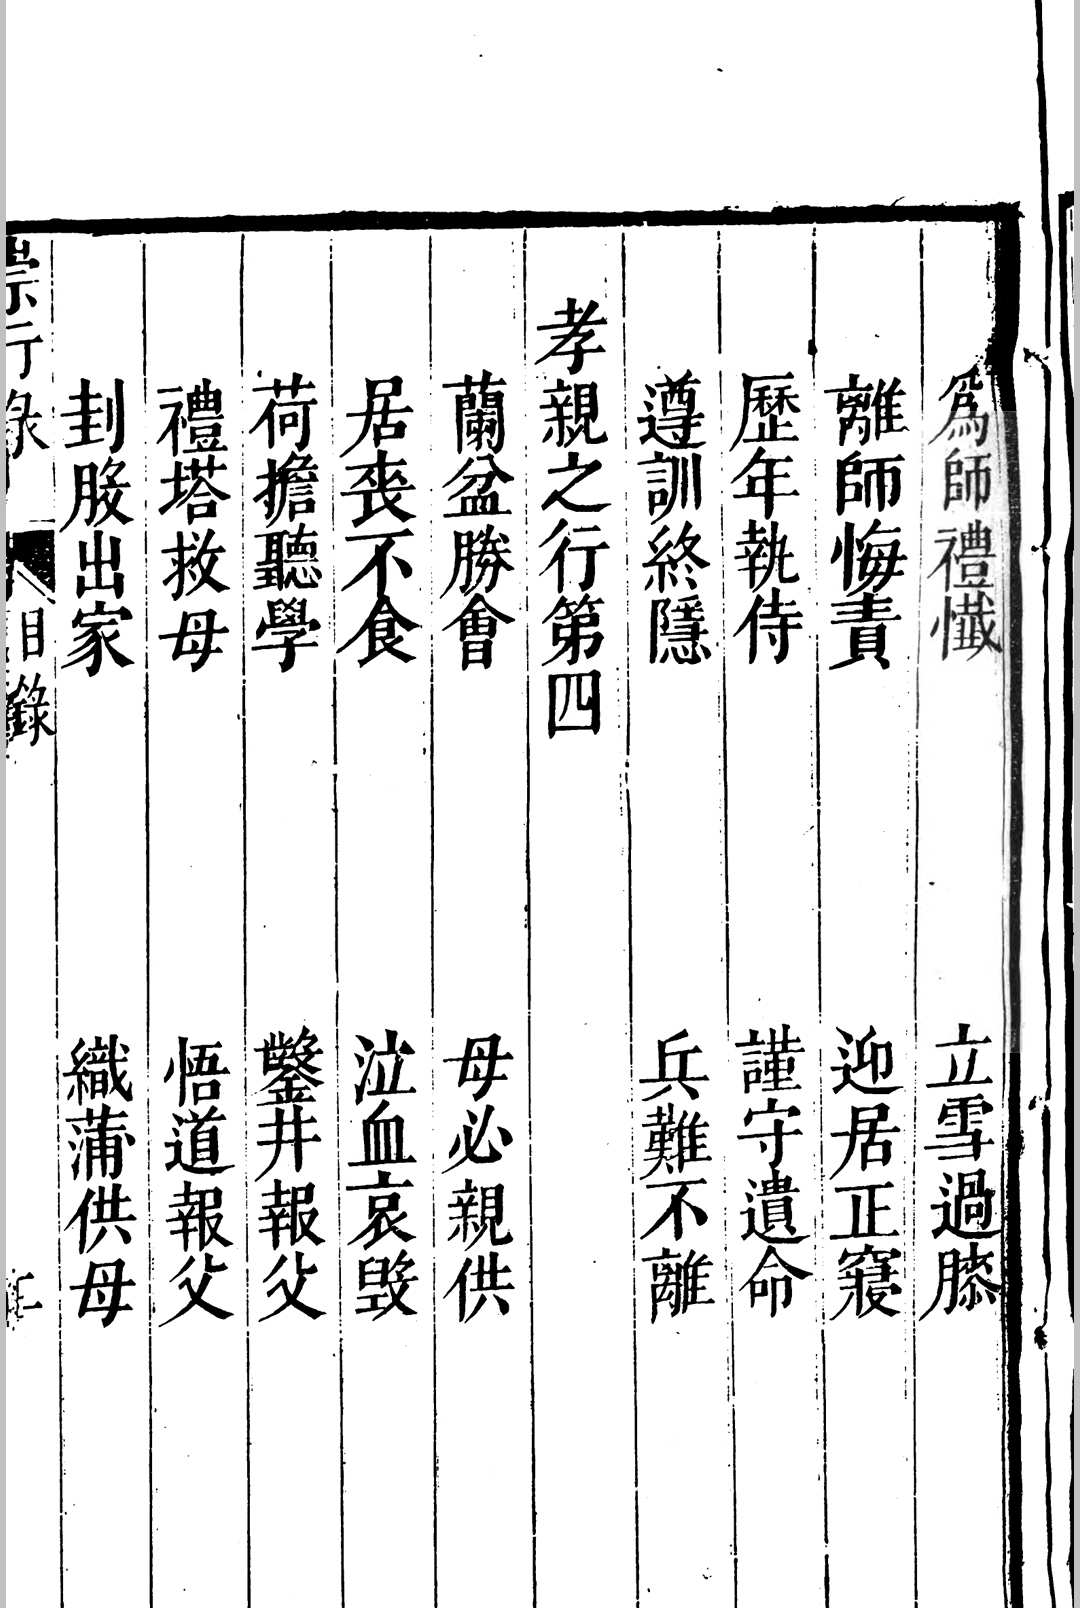 為師禮懴　立雪過膝
離師悔責　迎居正寢
歷年執侍　謹守遺命
遵訓終隱　兵難不離
孝親之行第四
蘭盆勝會　母必親供
居喪不食　泣血哀毀
荷擔聽學　鑿井報父
禮塔救母　悟道報父
刲股出家　織蒲供母
崇行錄　目錄